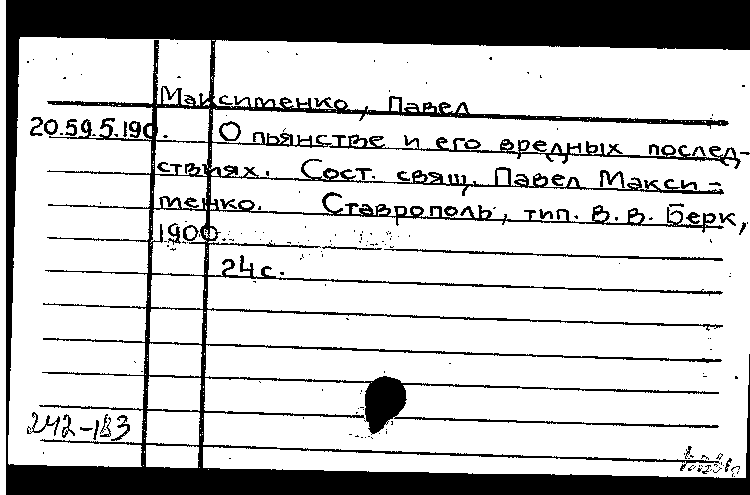 Максименко, Павел
20.59.5.190. О пьянстве и его вредных послед-
ствиях. Сост. свящ. Павел Макси=
менко. Ставрополь, тип. В.В. Берк,
1900
24 с.
242-183